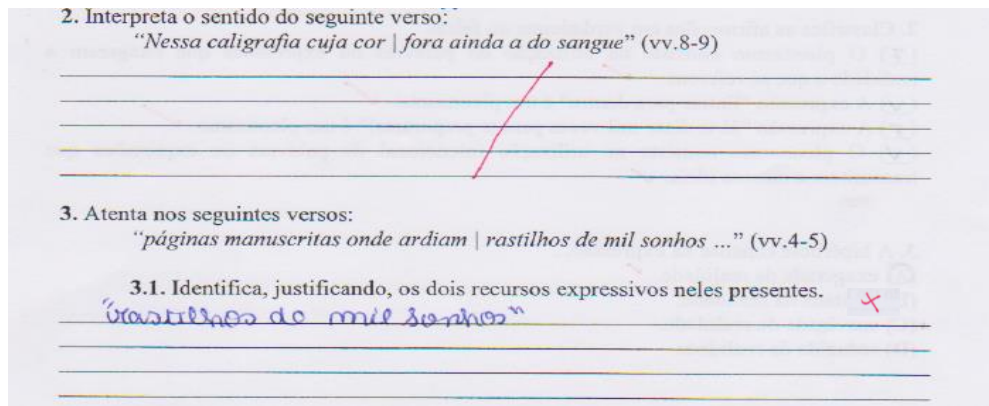 2. Interpreta o sentido do seguinte verso:
“Nessa caligrafia cuja cor | fora ainda a do sangue” (vv.8-9)
3. Atenta nos seguintes versos:
“páginas manuscritas onde ardiam | rastilhos de mil sonhos ...” (vv.4-5)
3.1. Identifica, justificando, os dois recursos expressivos neles presentes.
"rastilhos de mil sonhos"